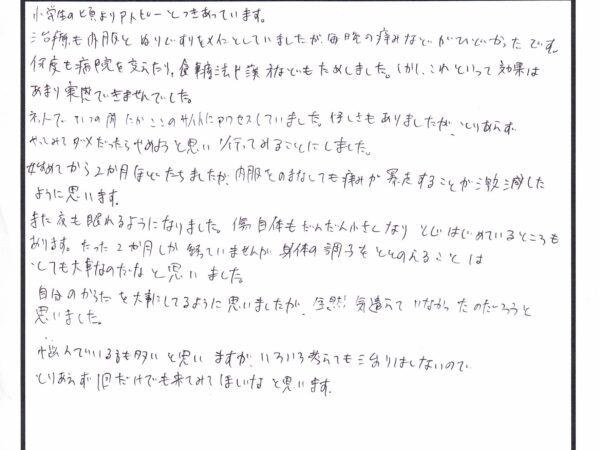 小学生の頃よりアトピーとつきあっています。
治療も内服とぬりぐすりをメインとしていましたが毎晩の痛みなどがひどかったです。
何度も病院を変えたり、食事療法や漢方などもためしました。しかし、これといって効果は
あまり実感できませんでした。
ネットでいつの間にかここのサイトにアクセスしていました。怪しさもありましたが、とりあえず
やってみてダメだったらやめようと思い行ってみることにしました。
始めてから2か月ほどたちましたが、内服そのままなしても痛みが暴走することが激減した
ように思います。
また夜も眠れるようになりました。傷自体もだんだん小さくなりとじはじめているところも
あります。たった2か月しか経っていませんが身体の調子をととのえることは
とても大事なのだなと思いました。
自分のからだを大事にしてるように思いましたが、全然気遣えていなかったのだろうと
思いました。
悩んでいる方も多いと思いますが、いろいろ考えても治りはしないので
とりあえず1回だけでも来てみてほしいなと思います。